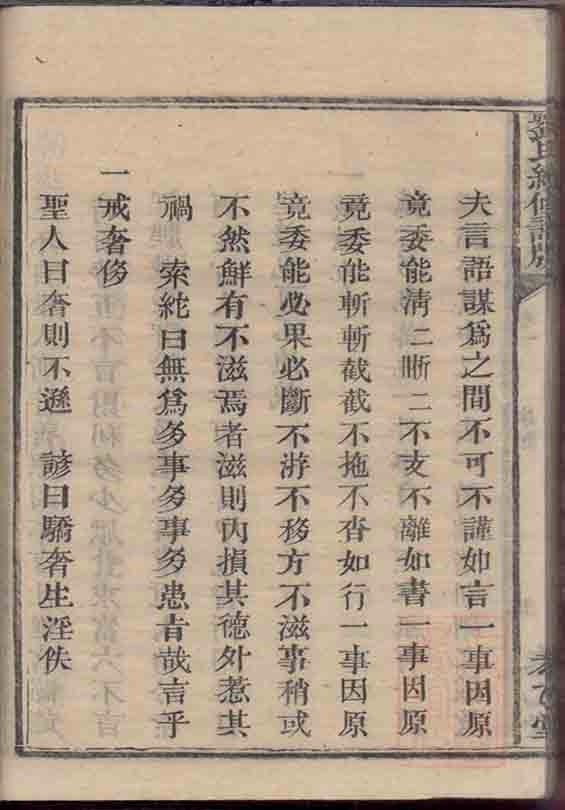 氏續修譜序
夫言語謀爲之間不可不謹如言一事因原
竟委能淸二晰二不支不離如書一事因原
竟委能斬斬截截不拖不沓如行一事因原
竟委能必果必斷不游不移方不滋事稍或
不然鮮有不滋焉者滋則內損其德外惹其
禍　索紽曰無爲多事多事多患旨哉言乎
一戒奢侈
聖人曰奢則不遜　諺曰驕奢生淫佚